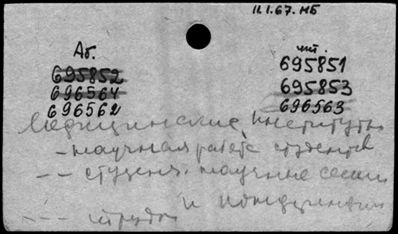 11.1.67. МБ
Аб.
695852
696564
696562
чит.
695851
695853
696563
Медицинские институты
- научная работа студентов
- - студенч. научные сессии
и конференции
- - - труды